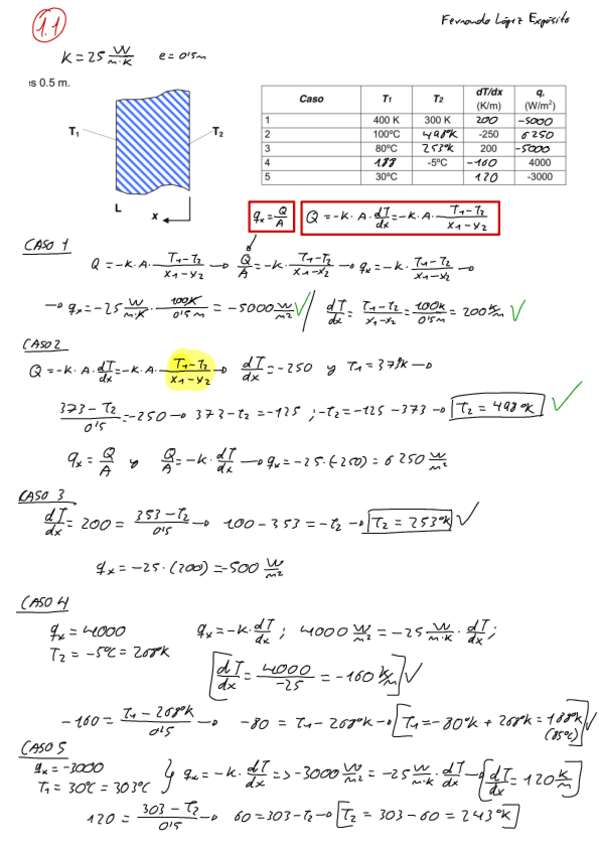 1.1
Fernando López Expósito
K = 25 W/m·K e = 0'5m
ıs 0.5 m.
T₁ T₂
L x
Caso T₁ T₂ dT/dx (K/m) qₓ (W/m²)
1 400 K 300 K 200 -5000
2 100ºC 498ºK -250 6250
3 80ºC 253ºK 200 -5000
4 188 -5ºC -160 4000
5 30ºC 120 -3000
qₓ = Q/A Q = -K·A·dT/dx = -K·A·(T₁-T₂)/(x₁-x₂)
CASO 1
Q = -K·A·(T₁-T₂)/(x₁-x₂) → Q/A = -K·(T₁-T₂)/(x₁-x₂) → qₓ = -K·(T₁-T₂)/(x₁-x₂) →
→ qₓ = -25 W/m·K · 100K/0'5m = -5000 W/m² ✓ / dT/dx = (T₁-T₂)/(x₁-x₂) = 100K/0'5m = 200 K/m ✓
CASO 2
Q = -K·A·dT/dx = -K·A·(T₁-T₂)/(x₁-x₂) → dT/dx = -250 y T₁ = 373ºK →
(373-T₂)/0'5 = -250 → 373-T₂ = -125 ; -T₂ = -125-373 → T₂ = 498ºK ✓
qₓ = Q/A y Q/A = -K·dT/dx → qₓ = -25·(-250) = 6250 W/m²
CASO 3
dT/dx = 200 = (353-T₂)/0'5 → 100-353 = -T₂ → T₂ = 253ºK ✓
qₓ = -25·(200) = -500 W/m²
CASO 4
qₓ = 4000 qₓ = -K·dT/dx ; 4000 W/m² = -25 W/m·K · dT/dx ;
T₂ = -5ºC = 268ºK
[dT/dx = 4000/-25 = -160 K/m] ✓
-160 = (T₁-268ºK)/0'5 → -80 = T₁-268ºK → [T₁ = -80ºK + 268ºK = 188ºK (85ºC)] ✓
CASO 5
qₓ = -3000
T₁ = 30ºC = 303ºC } qₓ = -K·dT/dx => -3000 W/m² = -25 W/m·K · dT/dx → [dT/dx = 120 K/m]
120 = (303-T₂)/0'5 → 60 = 303-T₂ → [T₂ = 303-60 = 243ºK]